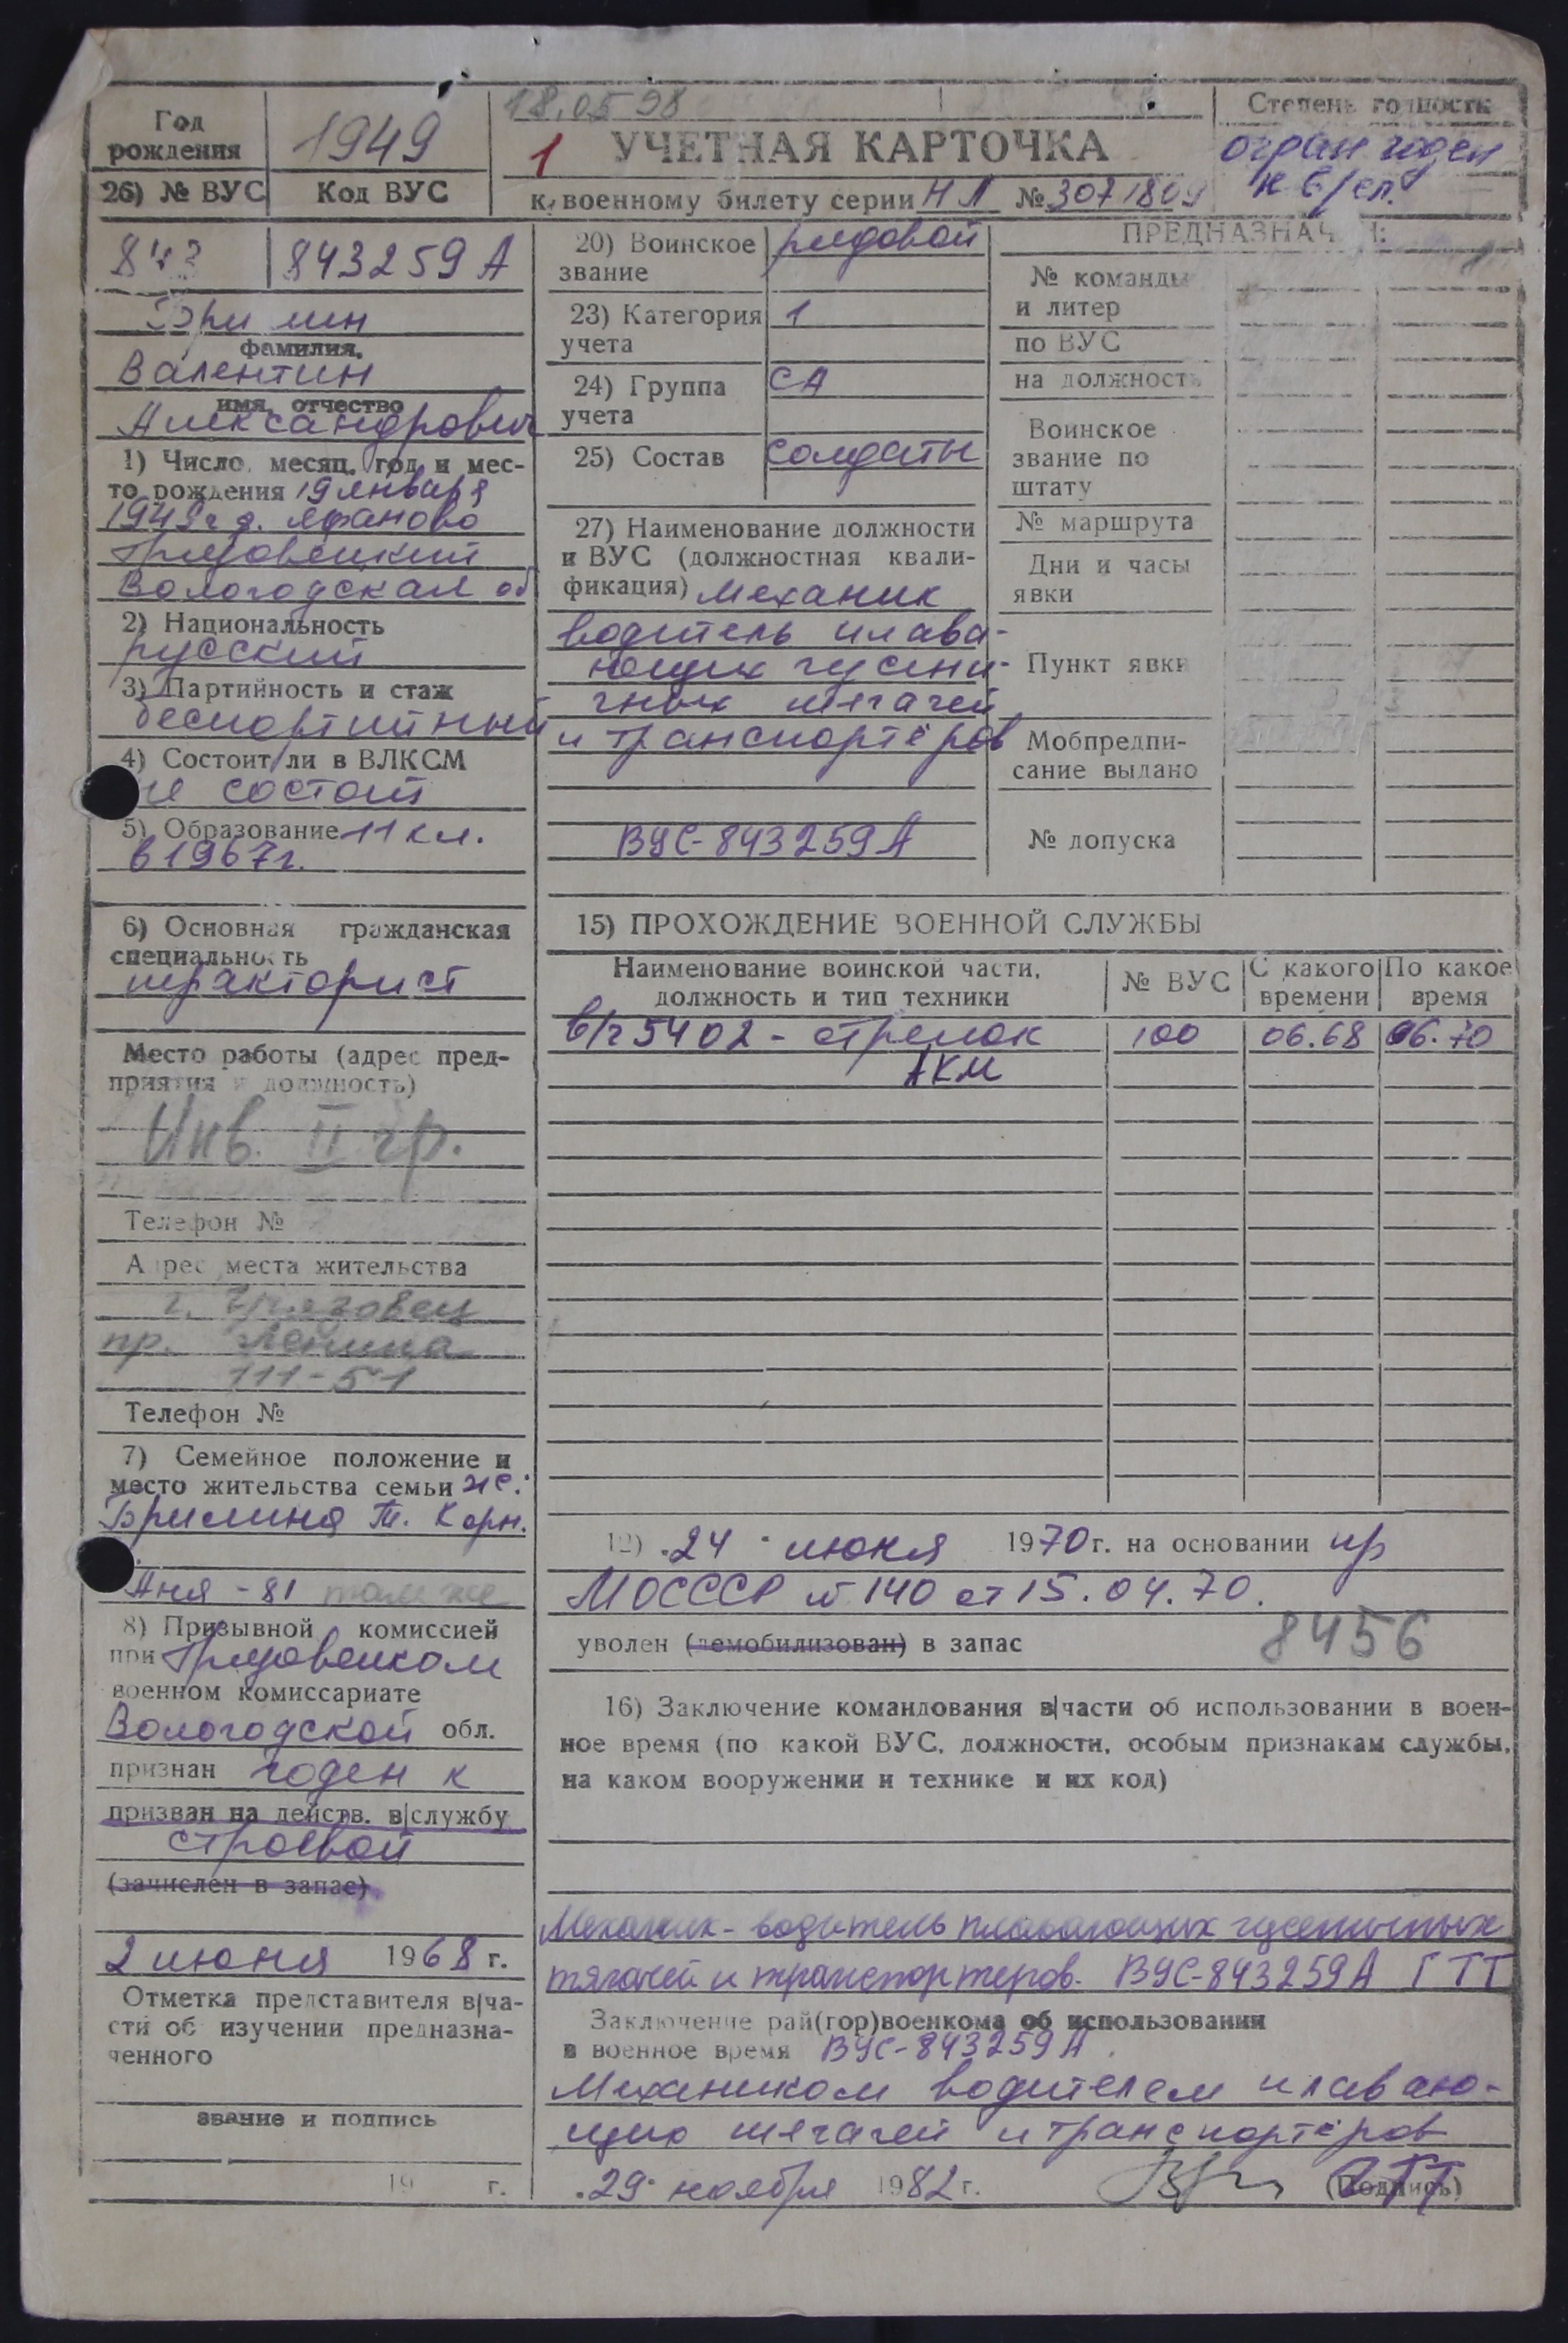 18.05 98
Степень годности
Год рождения
1949
1
УЧЕТНАЯ КАРТОЧКА
огран годен
к в/сл.
26) № ВУС
Код ВУС
к военному билету серии НЛ № 3071809
843
843259 А
Брилин
фамилия,
Валентин
имя, отчество
Александрович
1) Число, месяц, год и мес-
то рождения 19 января
1949 г д. Афаново
Грязовецкий
Вологодская об
2) Национальность
русский
3) Партийность и стаж
беспартийный
4) Состоит ли в ВЛКСМ
не состоит
5) Образование 11 кл.
в 1967 г.
6) Основная гражданская
специальность
тракторист
Место работы (адрес пред-
приятия и должность)
Инв. II гр.
Телефон №
Адрес места жительства
г. Грязовец
пр. Ленина
111-51
Телефон №
7) Семейное положение и
место жительства семьи же:
Брилина Т. Корн.
Аня - 81 там же
8) Призывной комиссией
при Грязовецком
военном комиссариате
Вологодской обл.
признан годен к
призван на действ. в|службу
строевой
(зачислен в запас)
2 июня 1968 г.
Отметка представителя в|ча-
сти об изучении предназна-
ченного
звание и подпись
19 г.
20) Воинское
звание
рядовой
23) Категория
учета
1
24) Группа
учета
СА
25) Состав
солдаты
27) Наименование должности
и ВУС (должностная квали-
фикация) механик
водитель плава-
ющих гусени-
чных тягачей
и транспортёров
ВУС-843259А
ПРЕДНАЗНАЧЕН:
№ команды
и литер
по ВУС
на должность
Воинское
звание по
штату
№ маршрута
Дни и часы
явки
Пункт явки
Мобпредпи-
сание выдано
№ допуска
15) ПРОХОЖДЕНИЕ ВОЕННОЙ СЛУЖБЫ
Наименование воинской части,
должность и тип техники
№ ВУС
С какого
времени
По какое
время
в/ч 5402 - стрелок 100 06.68 06.70
АКМ
19) "24" июня 1970 г. на основании пр
МО СССР № 140 от 15.04.70.
уволен (демобилизован) в запас
8456
16) Заключение командования в|части об использовании в воен-
ное время (по какой ВУС, должности, особым признакам службы,
на каком вооружении и технике и их код)
Механик-водитель плавающих гусеничных
тягачей и транспортеров. ВУС-843259А ГТТ
Заключение рай(гор)военкома об использовании
в военное время ВУС-843259А.
Механиком водителем плаваю-
щих тягачей и транспортёров
"29" ноября 1982 г.
(Подпись)
ГТТ